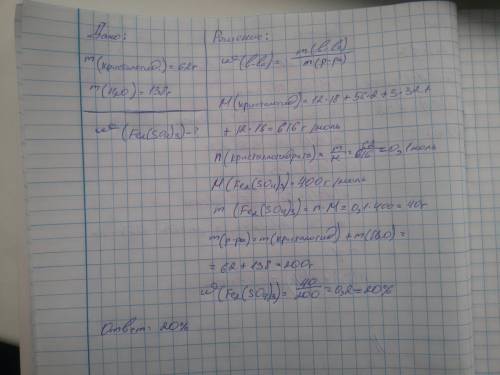 Дано:
m(кристалогид)=62г
m(H₂O)=138г
w(Fe₂(SO₄)₃)-?
Решение:
w(в-ва)= m(в-ва)/m(р-ра)
M(кристалогид)=12·18+56·2+3·32+
+12·16=616 г/моль
n(кристаллогидрата)= m/M = 62/616 =0,1 моль
M(Fe₂(SO₄)₃)=400 г/моль
m(Fe₂(SO₄)₃)=n·M=0,1·400=40г
m(р-ра)=m(кристалогид)+m(H₂O)=
=62+138=200г
w(Fe₂(SO₄)₃)= 40/200 =0,2=20%
Ответ: 20%